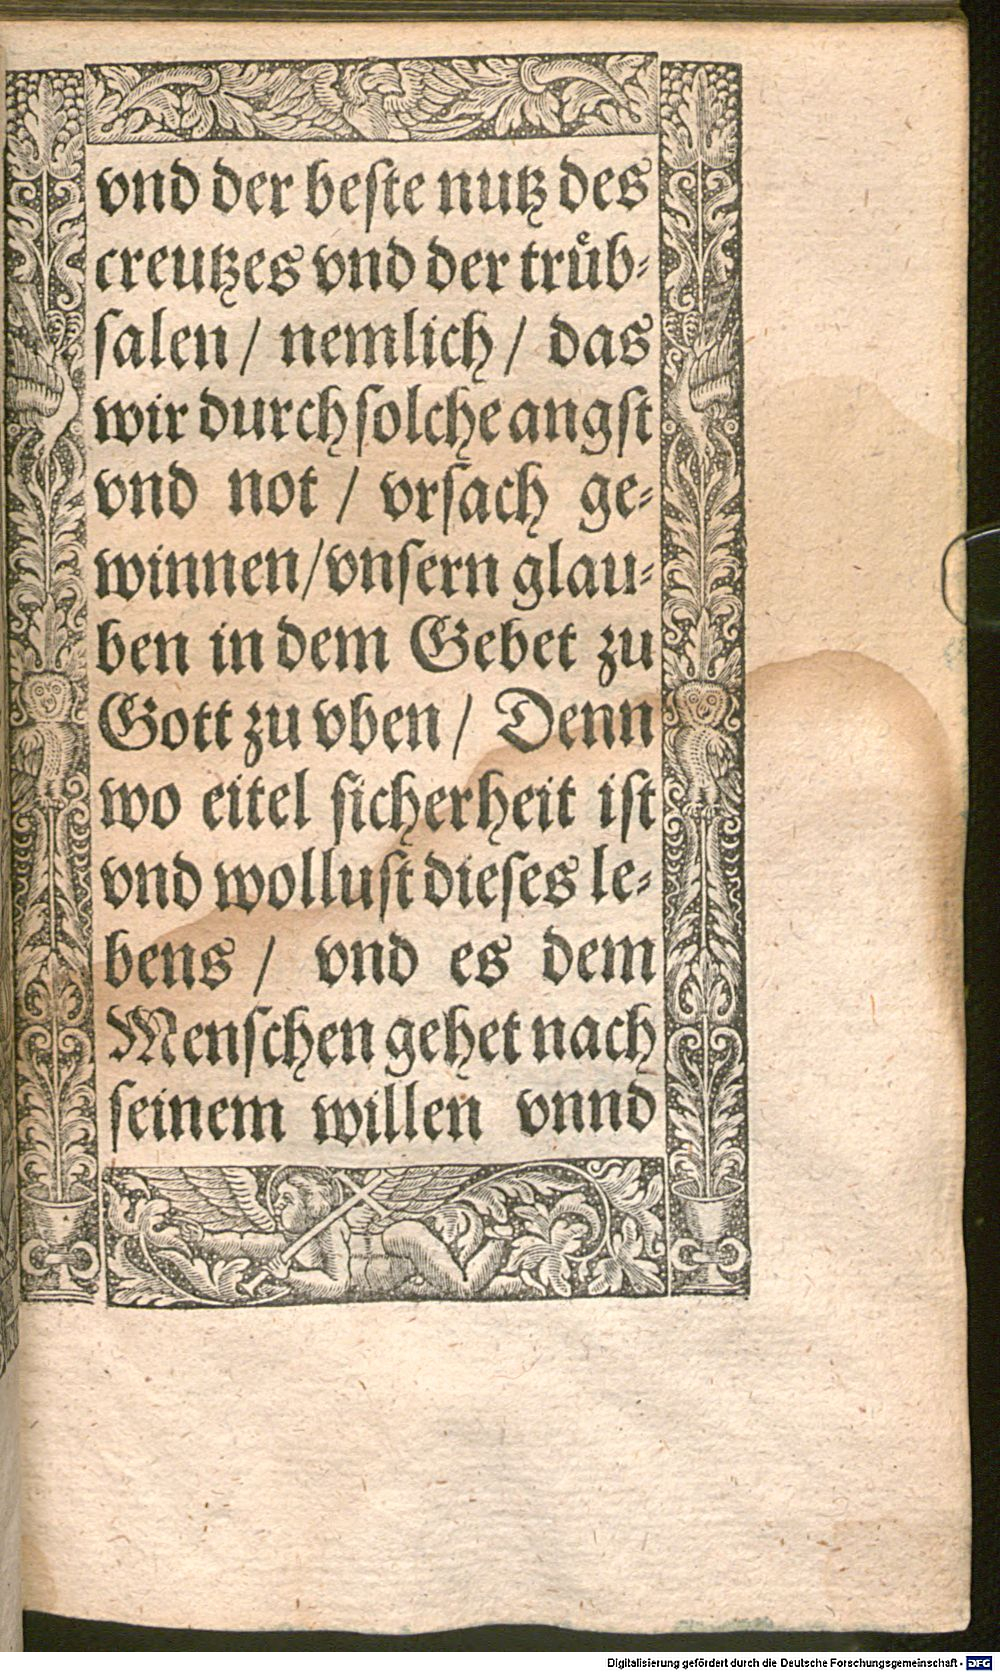 vnd der beſte nutz des
creutzes vnd der truͤb⸗
ſalen / nemlich / das
wir durch ſolche angſt
vnd not / vrſach ge⸗
winnen / vnſern glau⸗
ben in dem Gebet zu
Gott zu vben / Denn
wo eitel ſicherheit iſt
vnd wolluſt dieſes le⸗
bens / vnd es dem
Menſchen gehet nach
ſeinem willen vnnd
Digitalisierung gefördert durch die Deutsche Forschungsgemeinschaft - DFG